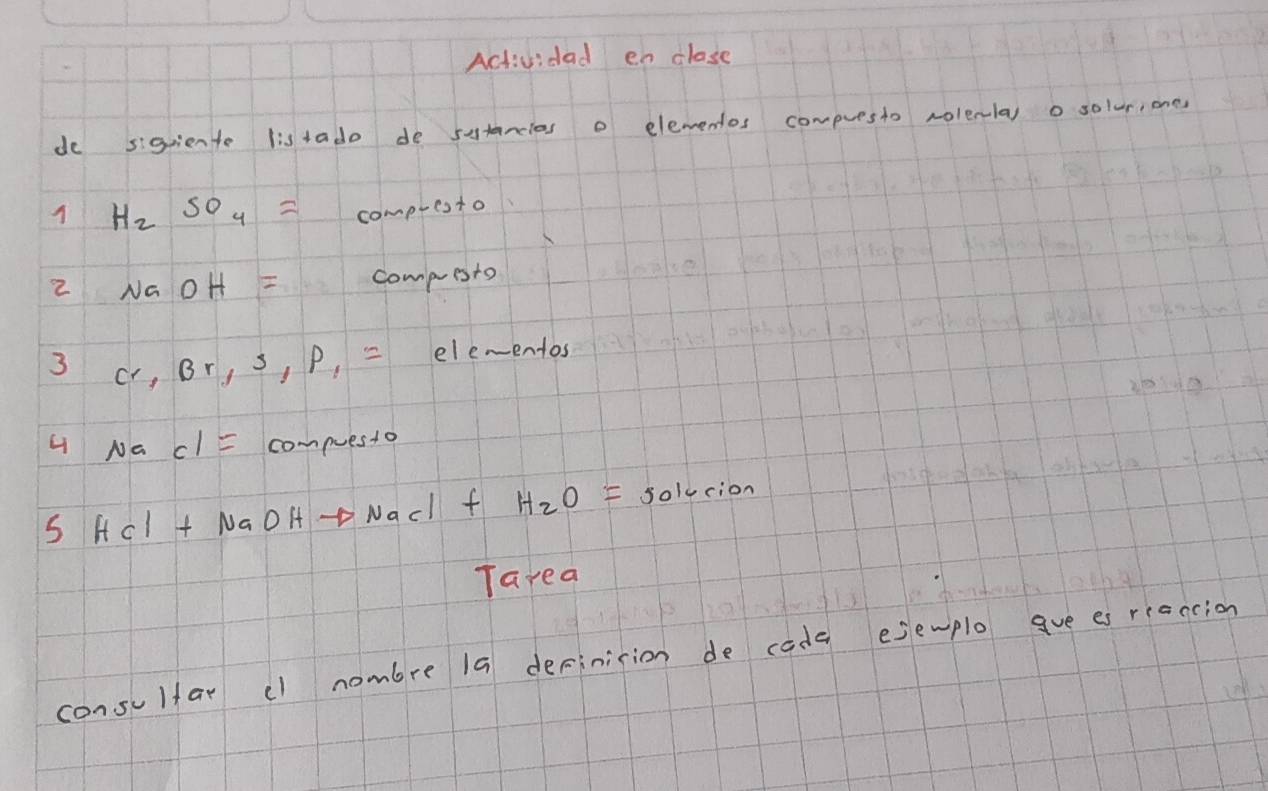 Actividad en clase
de siguiente listado de sustancias o elementos compuesto molecular o soluciones
1 H2 SO4 = compuesto
2 Na OH = compuesto
3 Cr, Br, S, P, = elementos
4 Na cl = compuesto
5 Hcl + NaOH → Nacl + H2O = solucion
Tarea
consultar el nombre la definicion de cada ejemplo que es reaccion